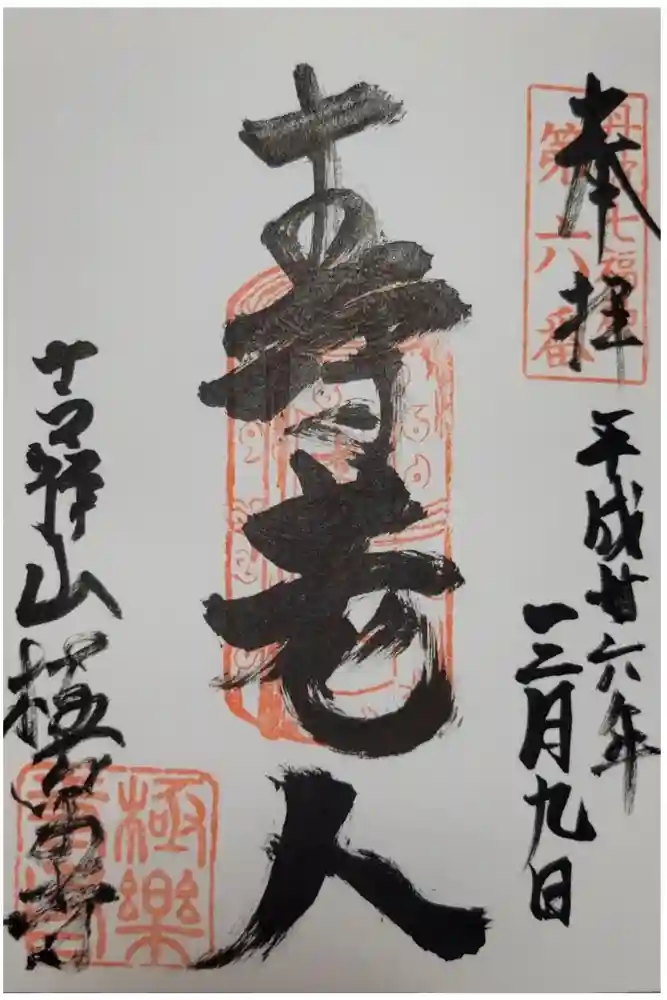 奉拝
丹波七福神
第六番
平成廿六年
一二月九日
寿老人
吉祥山 極楽寺
極樂